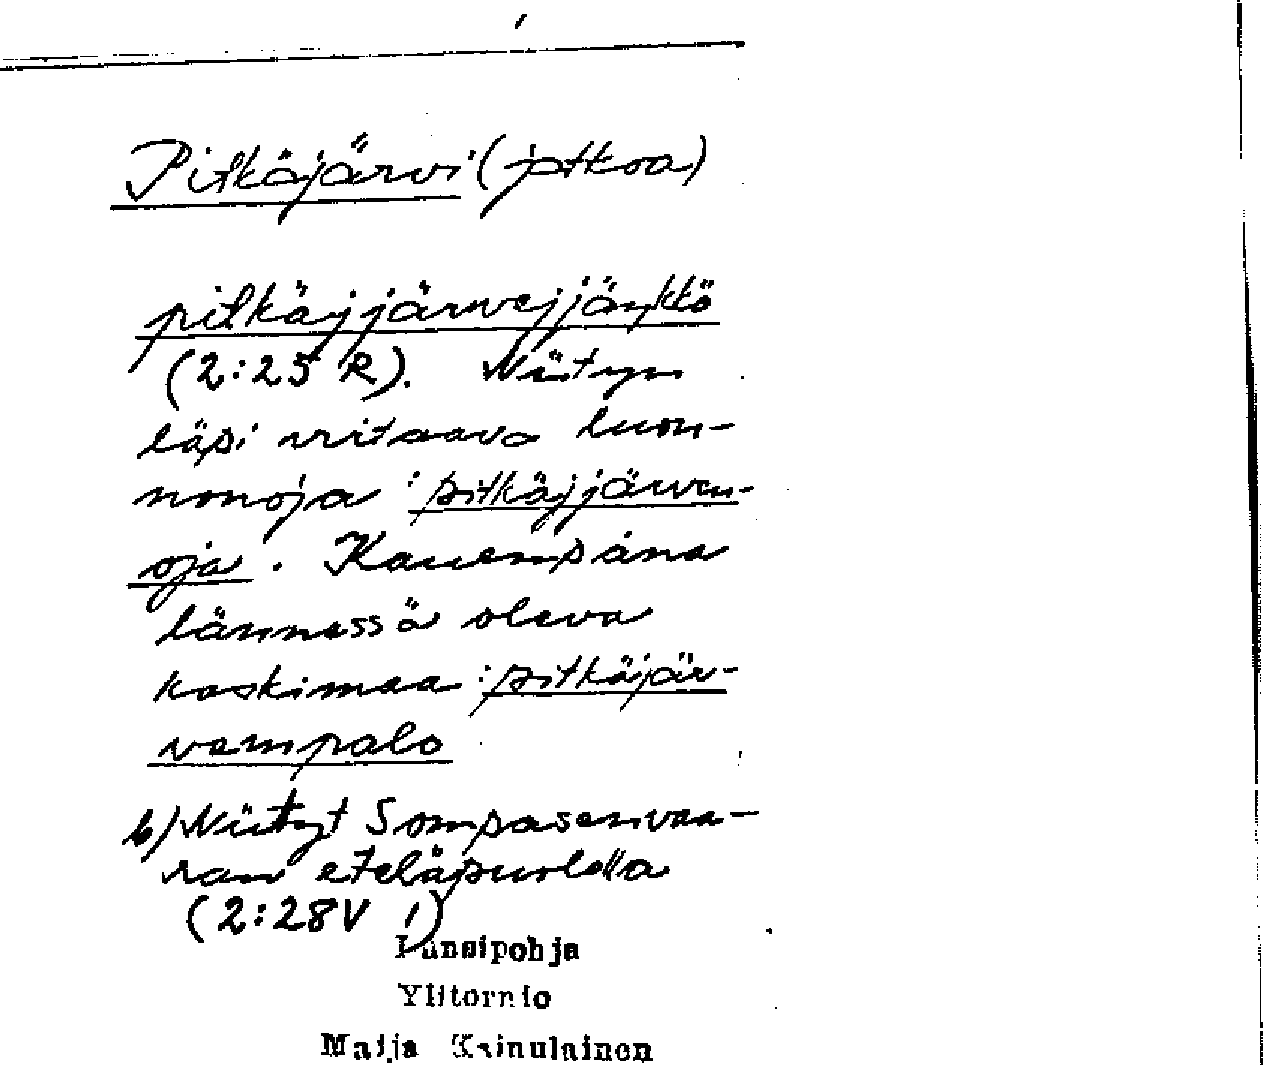 Pitkäjärvi (jatkoa)
pitkäjjärvejjäŋkkö
(2:25 R). Niityn
läpi virtaava luon-
nonoja: pitkäjjärven-
oja. Kauempana
lännessä oleva
kaskimaa: pitkäjär-
vempalo
b) Niityt Sompasenvaa-
ran eteläpuolella
(2:28V 1)
Länsipohja
Ylitornio
Maija Kainulainen